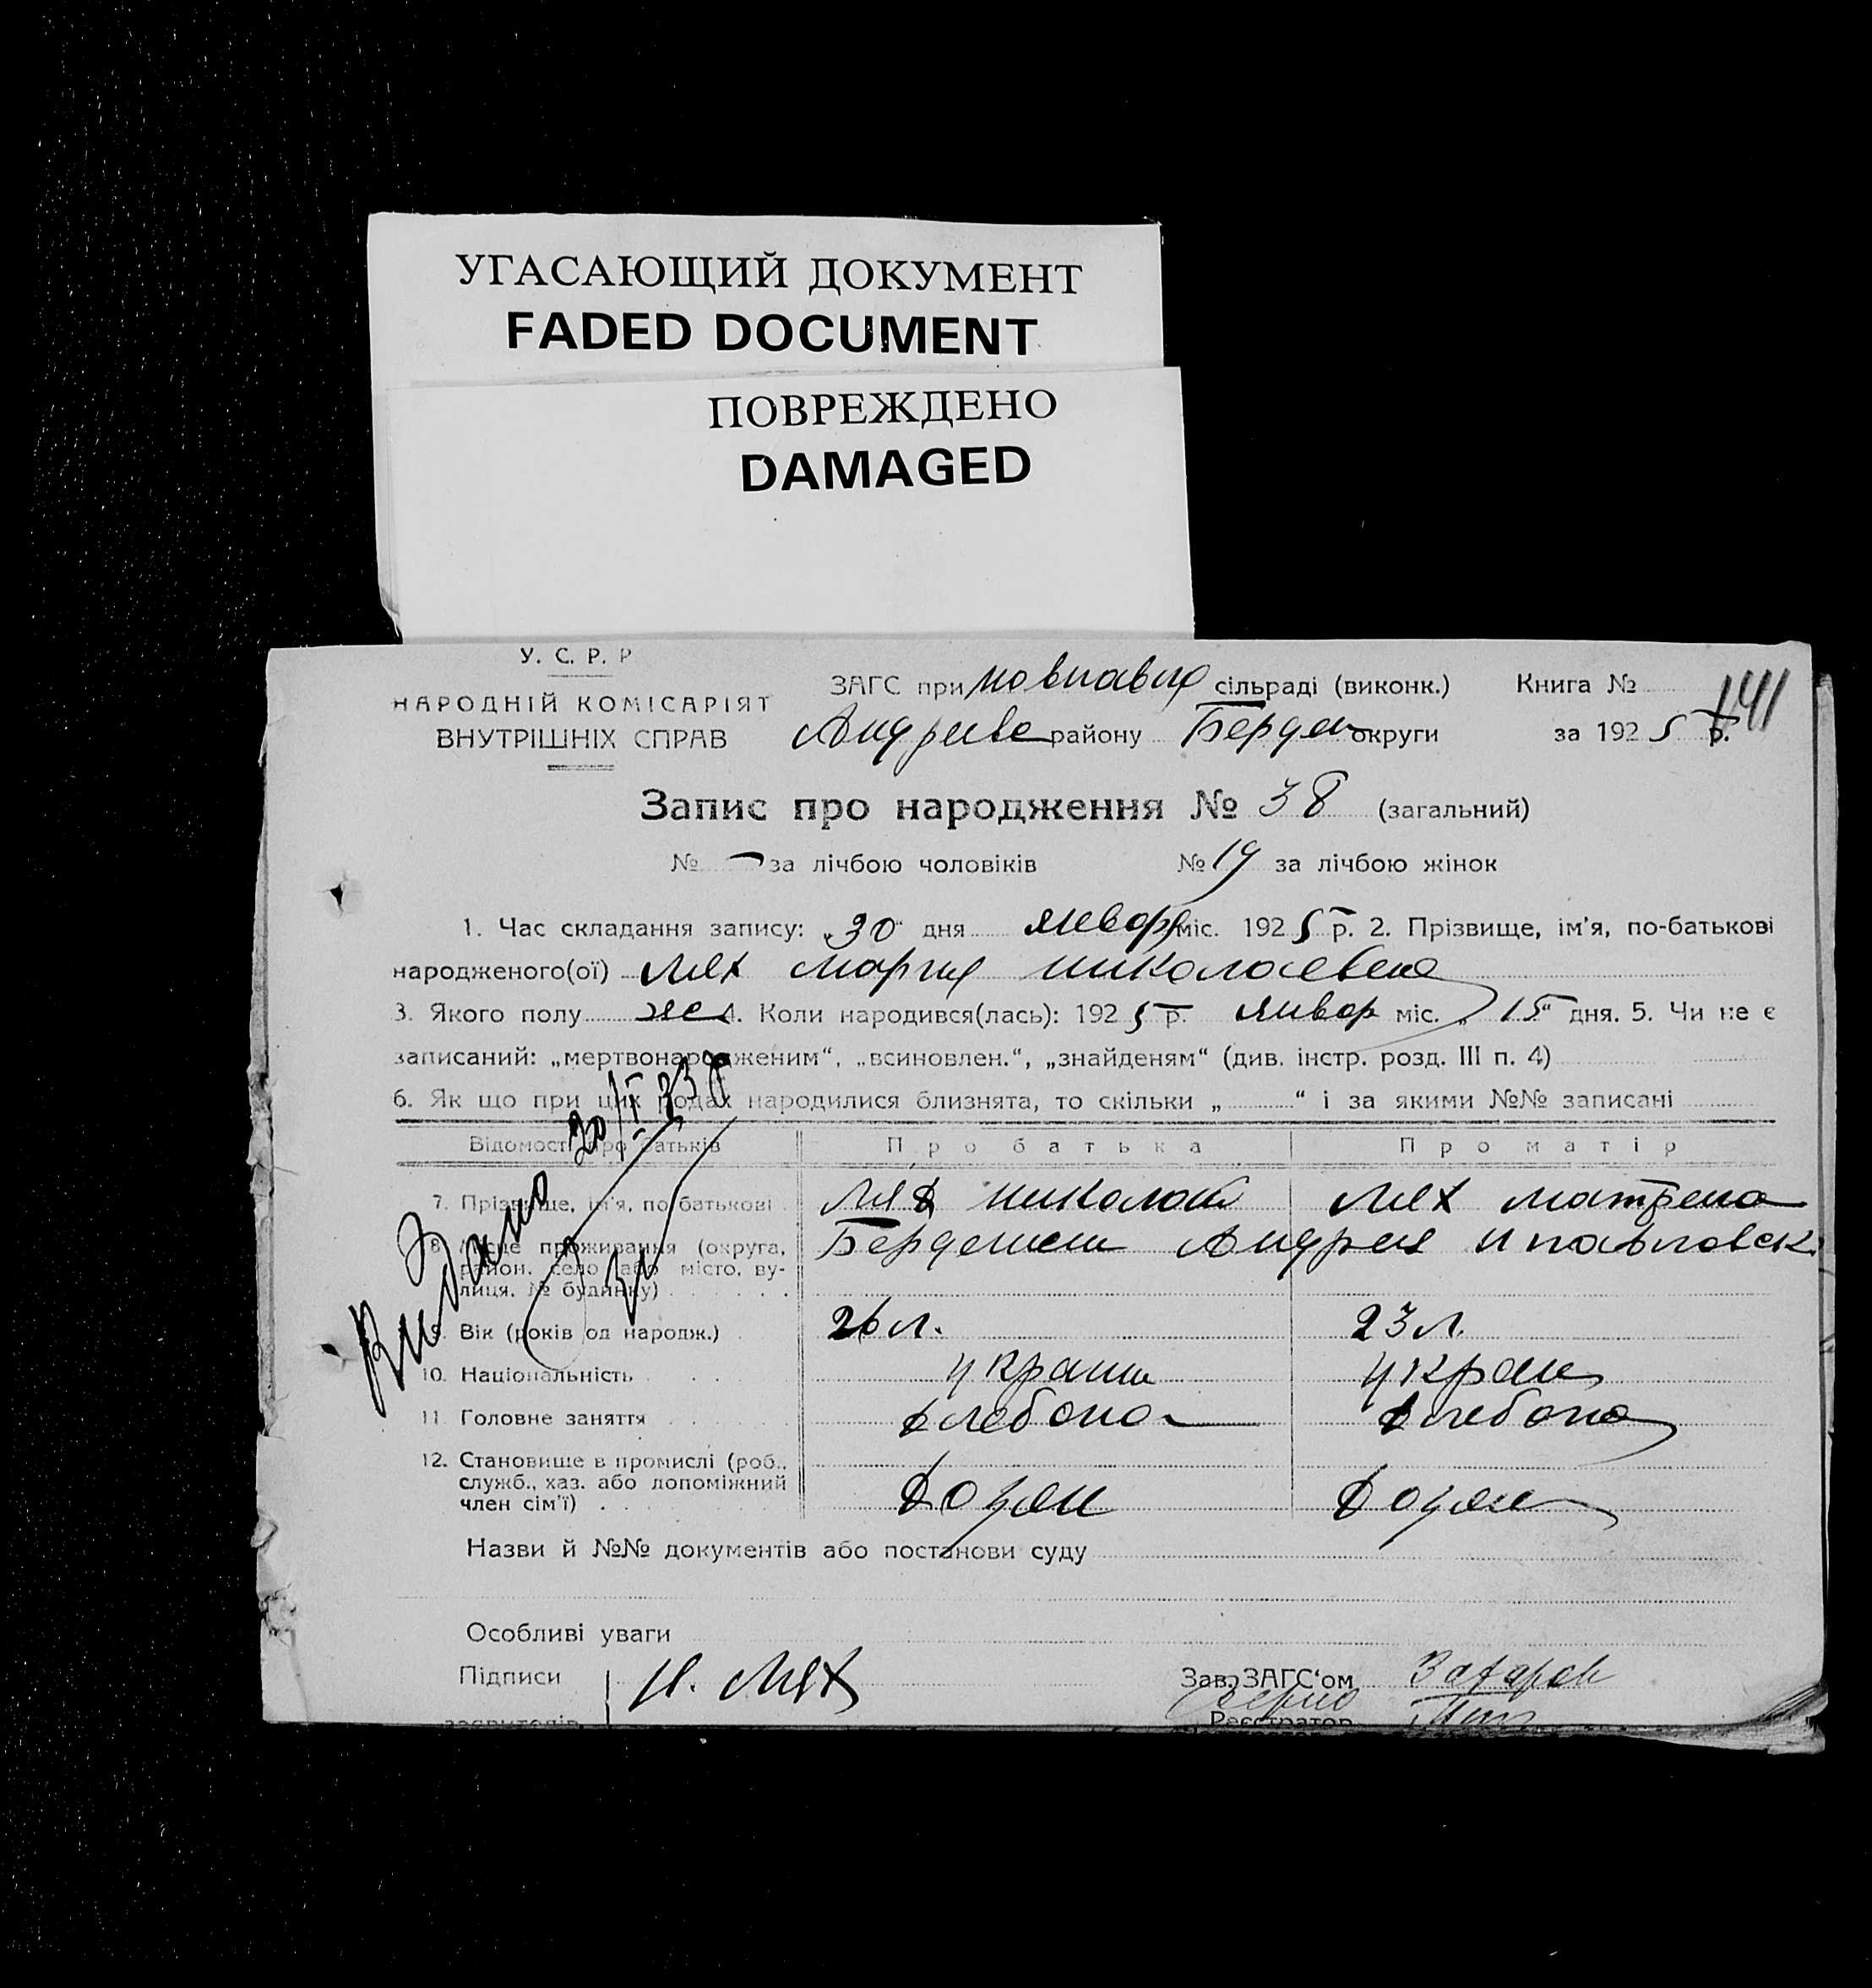 УГАСАЮЩИЙ ДОКУМЕНТ
FADED DOCUMENT
ПОВРЕЖДЕНО
DAMAGED
У. С. Р. Р
НАРОДНІЙ КОМІСАРІЯТ
ВНУТРІШНІХ СПРАВ
ЗАГС при новпавло сільраді (виконк.) Книга № 141
Андреев району Бердян округи за 1925 р.
Запис про народження № 38 (загальний)
№ — за лічбою чоловіків № 19 за лічбою жінок
1. Час складання запису: „30“ дня январ міс. 1925 р. 2. Прізвище, ім'я, по-батькові
народженого(ої) Лях Мария Николаевна
3. Якого полу же 4. Коли народився(лась): 1925 р. январ міс. „15“ дня. 5. Чи не є
записаний: „мертвонародженим“, „всиновлен.“, „знайденям“ (див. інстр. розд. III п. 4)
6. Як що при цих родах народилися близнята, то скільки „ “ і за якими №№ записані
Відомості про батьків Про батька Про матір
7. Прізвище, ім'я, по батькові Лях Николай Лях Матрена
8. Місце проживання (округа, район, село або місто, вулиця, № будинку) Бердянск Андрея Н павловск.
9. Вік (років од народж.) 26 л. 23 л.
10. Національність украин украин
11. Головне заняття хлебопа хлебопа
12. Становище в промислі (роб.,
служб., хаз. або допоміжний
член сім'ї) хозян хозян
Видано
Назви й №№ документів або постанови суду
Особливі уваги
Підписи Н. Лях Зав. ЗАГС'ом Захаров
Реєстратор